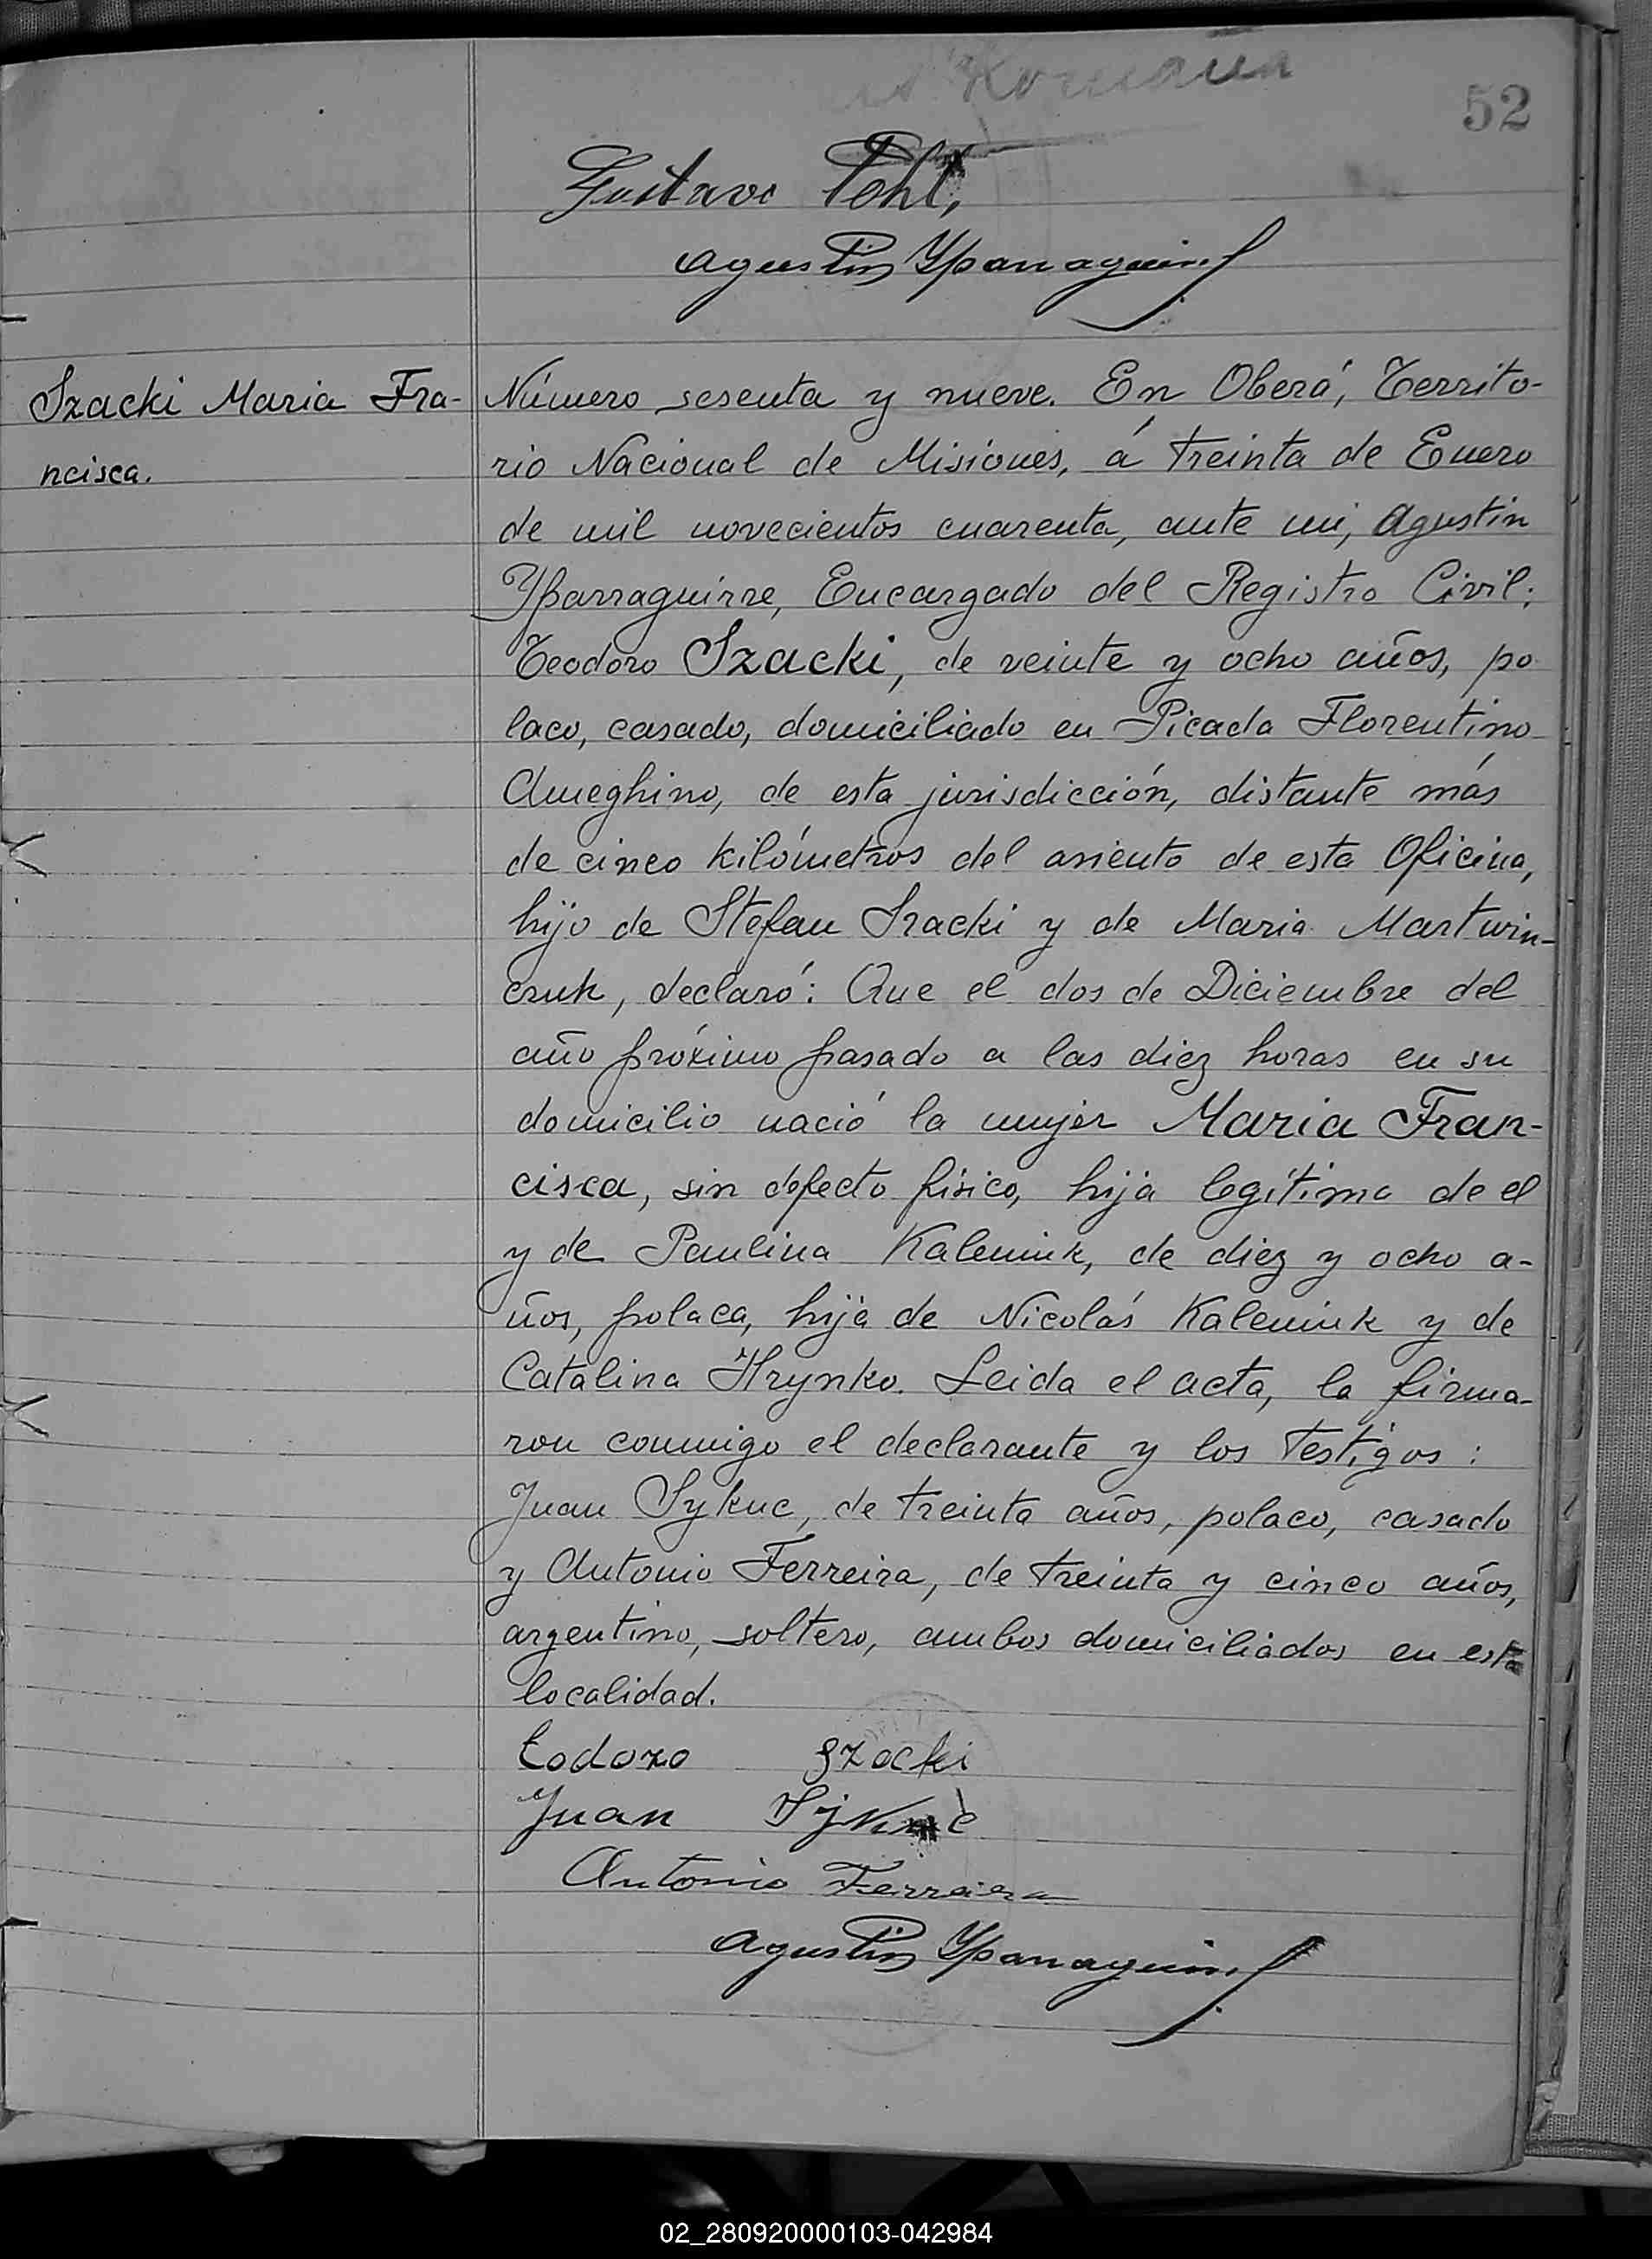 52
Gustavo Pohl,
Agustin Yparraguirre
Szacki Maria Fra-
ncisca.
Número sesenta y nueve. En Oberá, Territo-
rio Nacional de Misiones, á treinta de Enero
de mil novecientos cuarenta, ante mi, Agustin
Yparraguirre, Encargado del Registro Civil;
Teodoro Szacki, de veinte y ocho años, po
laco, casado, domiciliado en Picada Florentino
Ameghino, de esta jurisdicción, distante más
de cinco kilómetros del asiento de esta Oficina,
hijo de Stefan Szacki y de Maria Martwin-
czuk, declaró: Que el dos de Diciembre del
año próximo pasado a las diez horas en su
domicilio nació la mujer Maria Fran-
cisca, sin defecto físico, hija legítima de el
y de Paulina Kaleniuk, de diez y ocho a-
ños, polaca, hija de Nicolás Kaleniuk y de
Catalina Hrynko. Leida el acta, la firma-
ron conmigo el declarante y los testigos:
Juan Sykuc, de treinta años, polaco, casado
y Antonio Ferreira, de treinta y cinco años,
argentino, soltero, ambos domiciliados en esta
localidad.
Todoro Szacki
Juan
Antonio Ferreira
Agustin Yparraguirre
02_280920000103-042984